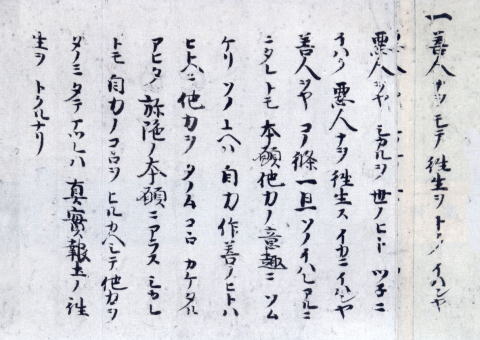 一 善人ナヲモテ往生ヲトク イハンヤ
悪人ヲヤ シカルヲ 世ノヒト ツ子ニ
イハク 悪人ナヲ往生ス イカニイハンヤ
善人ヲヤ コノ條 一旦ソノイハレアルニ
ニタレトモ 本願他力ノ意趣ニ ソム
ケリ ソノユヘハ 自力作善ノヒトハ
ヒトヘニ 他力ヲ タノムコヽロ カケタル
アヒタ 弥陀ノ本願ニアラス シカレ
トモ 自力ノコヽロヲ ヒルカヘシテ 他力ヲ
タノミタテマツレハ 真實報土ノ 往
生ヲ トクルナリ